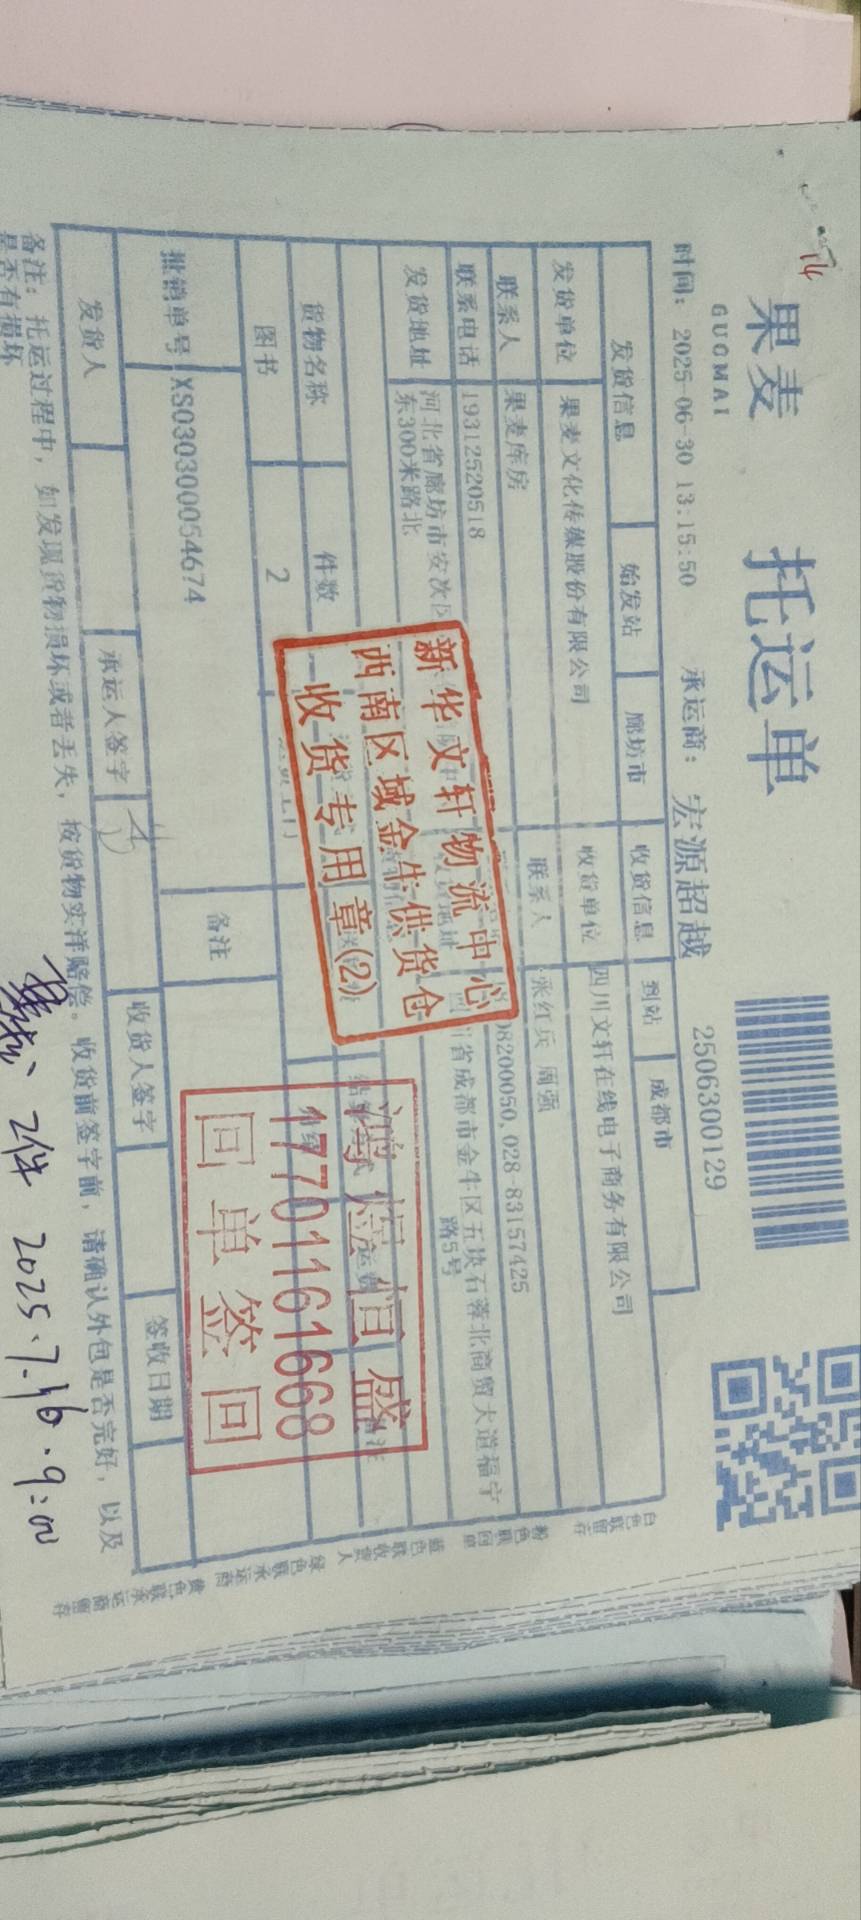 果麦
GUOMAI
托运单
2506300129
时间：2025-06-30 13:15:50 承运商：宏源超越
发货信息 始发站 廊坊市 收货信息 到站 成都市
发货单位 果麦文化传媒股份有限公司 收货单位 四川文轩在线电子商务有限公司
联系人 果麦库房 联系人 张红兵 周强
联系电话 19312520518 98200050,028-83157425
发货地址 河北省廊坊市安次区
东300米路北
省成都市金牛区五块石蓉北商贸大道福宁
路5号
货物名称 件数
图书 2
报销单号 XS030300054674 备注
发货人 承运人签字 收货人签字 签收日期
备注：托运过程中，如发现货物损坏或者丢失，按货物实洋赔偿。收货前签字前，请确认外包是否完好，以及
是否有损坏
新华文轩物流中心
西南区域金牛供货仓
收货专用章(2)
鸿煜恒盛
17701161668
回单签回
2件 2025.7.16.9:00
白色联留存
粉色联回单
蓝色联收货人
绿色联承运商
黄色联承运商留存